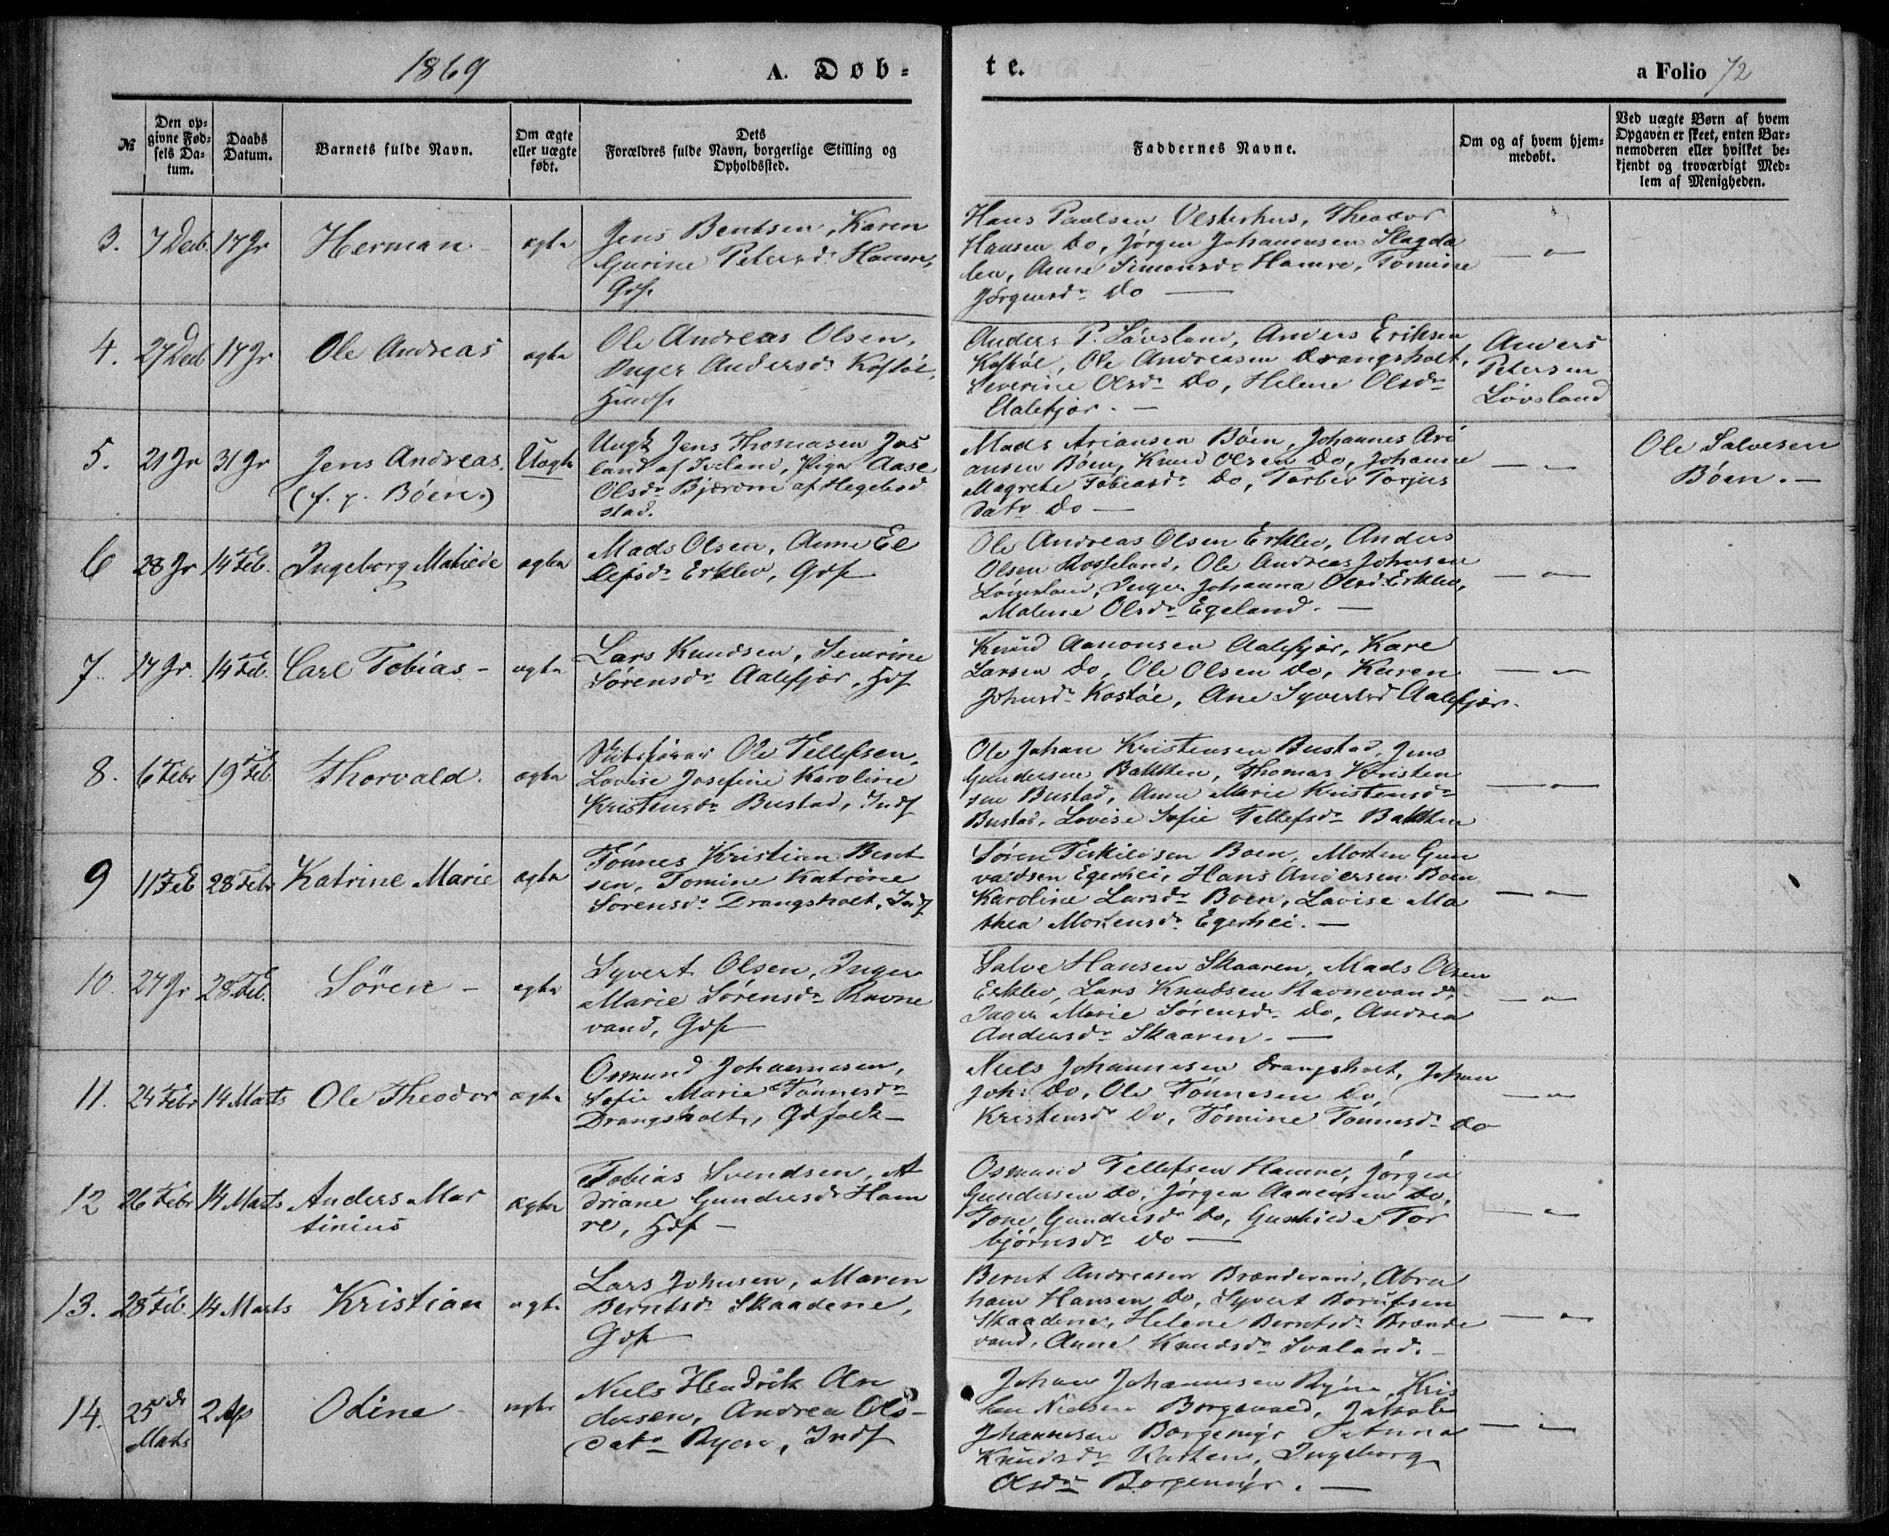 1869 A. Døb-
te. a Folio 72
№
Den op-
givne Fød-
sels Da-
tum.
Daabs
Datum.
Barnets fulde Navn.
Om ægte
eller uægte
født.
Dets
Forældres fulde Navn, borgerlige Stilling og
Opholdssted.
Faddernes Navne.
Om og af hvem hjem-
medøbt.
Ved uægte Børn af hvem
Opgaven er skeet, enten Bar-
nemoderen eller hvilket be-
kjendt og troværdigt Med-
lem af Menigheden.
3. 7 Decb. 17 Jr Herman - ægte
Jens Bentsen, Karen
Gurine Petersdr Hamre,
Gdf.
Hans Paulsen Vesterhus, Theodor
Hansen Do, Jørgen Johannesen Slagda
len, Anne Simonsdr Hamre, Tomine
Jørgensdr Do —
— " —
4. 27 Decb 17 Jr Ole Andreas ægte
Ole Andreas Olsen,
Inger Andersdr Kostøl,
Hmdf
Anders P. Løvsland, Anders Eriksen
Kostøl, Ole Andreasen Drangsholt,
Severine Olsdr Do, Helene Olsdr
Aalefjær. —
Anders
Petersen
Løvsland
5. 21 Jr 31 Jr Jens Andreas.
(f. p. Bøen.)
Uægte
Ungk Jens Thomasen Jos
land af Iveland, Pige Aase
Olsdr Bjærom af Hegebod
stad.
Mads Ariansen Bøen, Johannes Ari
ansen Bøen, Knud Olsen Do, Johanne
Magrete Tobiasdr Do, Torbor Torjus
datr Do —
— " —
Ole Salvesen
Bøen. —
6 28 Jr 14 Feb. Ingeborg Matilde ægte
Mads Olsen, Anne El
lefsdr Erklev, Gdf
Ole Andreas Olsen Erklev, Anders
Olsen Rosseland, Ole Andreas Johnsen
Løvsland, Inger Johanna Olsdr Erklev,
Malene Olsdr Egeland. —
— " —
7. 14 Jr. 14 Feb. Carl Tobias - ægte
Lars Knudsen, Severine
Sørensdr Aalefjær, Hdf
Knud Aanonsen Aalefjær, Kare
Larsen Do, Ole Olsen Do, Karen
Johnsdr Kostøl, Ane Syvertsd Aalefjær.
— " —
8. 6 Febr 19 Feb. Thorvald. ægte
Skibsfører Ole Tellefsen,
Lovise Josefine Karoline
Kristensdr Bustad, Indf
Ole Johan Kristensen Bustad, Jens
Gundersen Bakken, Thomas Kristen
sen Bustad, Anne Marie Kristensdr
Bustad, Lovise Sofie Tellefsdr Bakken
— " —
9 11 Feb 28 Febr Katrine Marie ægte
Tønnes Kristian Bent
sen, Tomine Katrine
Sørensdr Drangsholt, Indf
Søren Terkildsen Boen, Morten Gun
valdsen Egerhei, Hans Andersen Boen
Karoline Larsdr Boen, Lovise Ma
thea Mortensdr Egerhei. —
— " —
10. 27 Jr 28 Feb. Søren - ægte
Syvert Olsen, Inger
Marie Sørensdr Ravne
vand, Gdf
Salve Hansen Skaaren, Mads Olsen
Erklev, Lars Knudsen Ravnevand,
Inger Marie Sørensdr Do, Andrea
Andersdr Skaaren. —
— " —
11. 24 Febr 14 Marts Ole Theodor ægte
Osmund Johannesen,
Sofie Marie Tønnesdr
Drangsholt, Gdfolk —
Niels Johannesen Drangsholt, Johan
Joh: Do, Ole Tønnesen Do,
Kristensdr Do, Tomine Tønnesdr Do
— " —
12 26 Febr 14 Marts Anders Mar
tinius
ægte
Tobias Svendsen, A
driane Gundersdr Ham
re, Hdf —
Osmund Tellefsen Hamre, Jørgen
Gundersen Do, Jørgen Aanensen Do,
Tone Gundersdr Do, Gunhilde Tor
bjørnsdr Do —
— " —
13. 28 Feb. 14 Marts Kristian ægte
Lars Johnsen, Maren
Berntsdr Skaadene,
Gdf
Bernt Andreasen Brændevand, Abra
ham Hansen Do, Syvert Borufsen
Skaadene, Helene Berntsdr Brænde
vand, Anne Knudsdr Svaland. -
— " —
14. 25de
Marts
2 Ap Odine - ægte
Niels Hendrik An
dersen, Andrea Ols-
datr Ryen, Indf
Johan Johannesen Ryen, Kris
ten Nielsen Borgevold, Jakob
Johannesen Borgemyr, Anna
Knudsdr Kostøl, Ingeborg
Olsdr Borgemyr. —
— " —